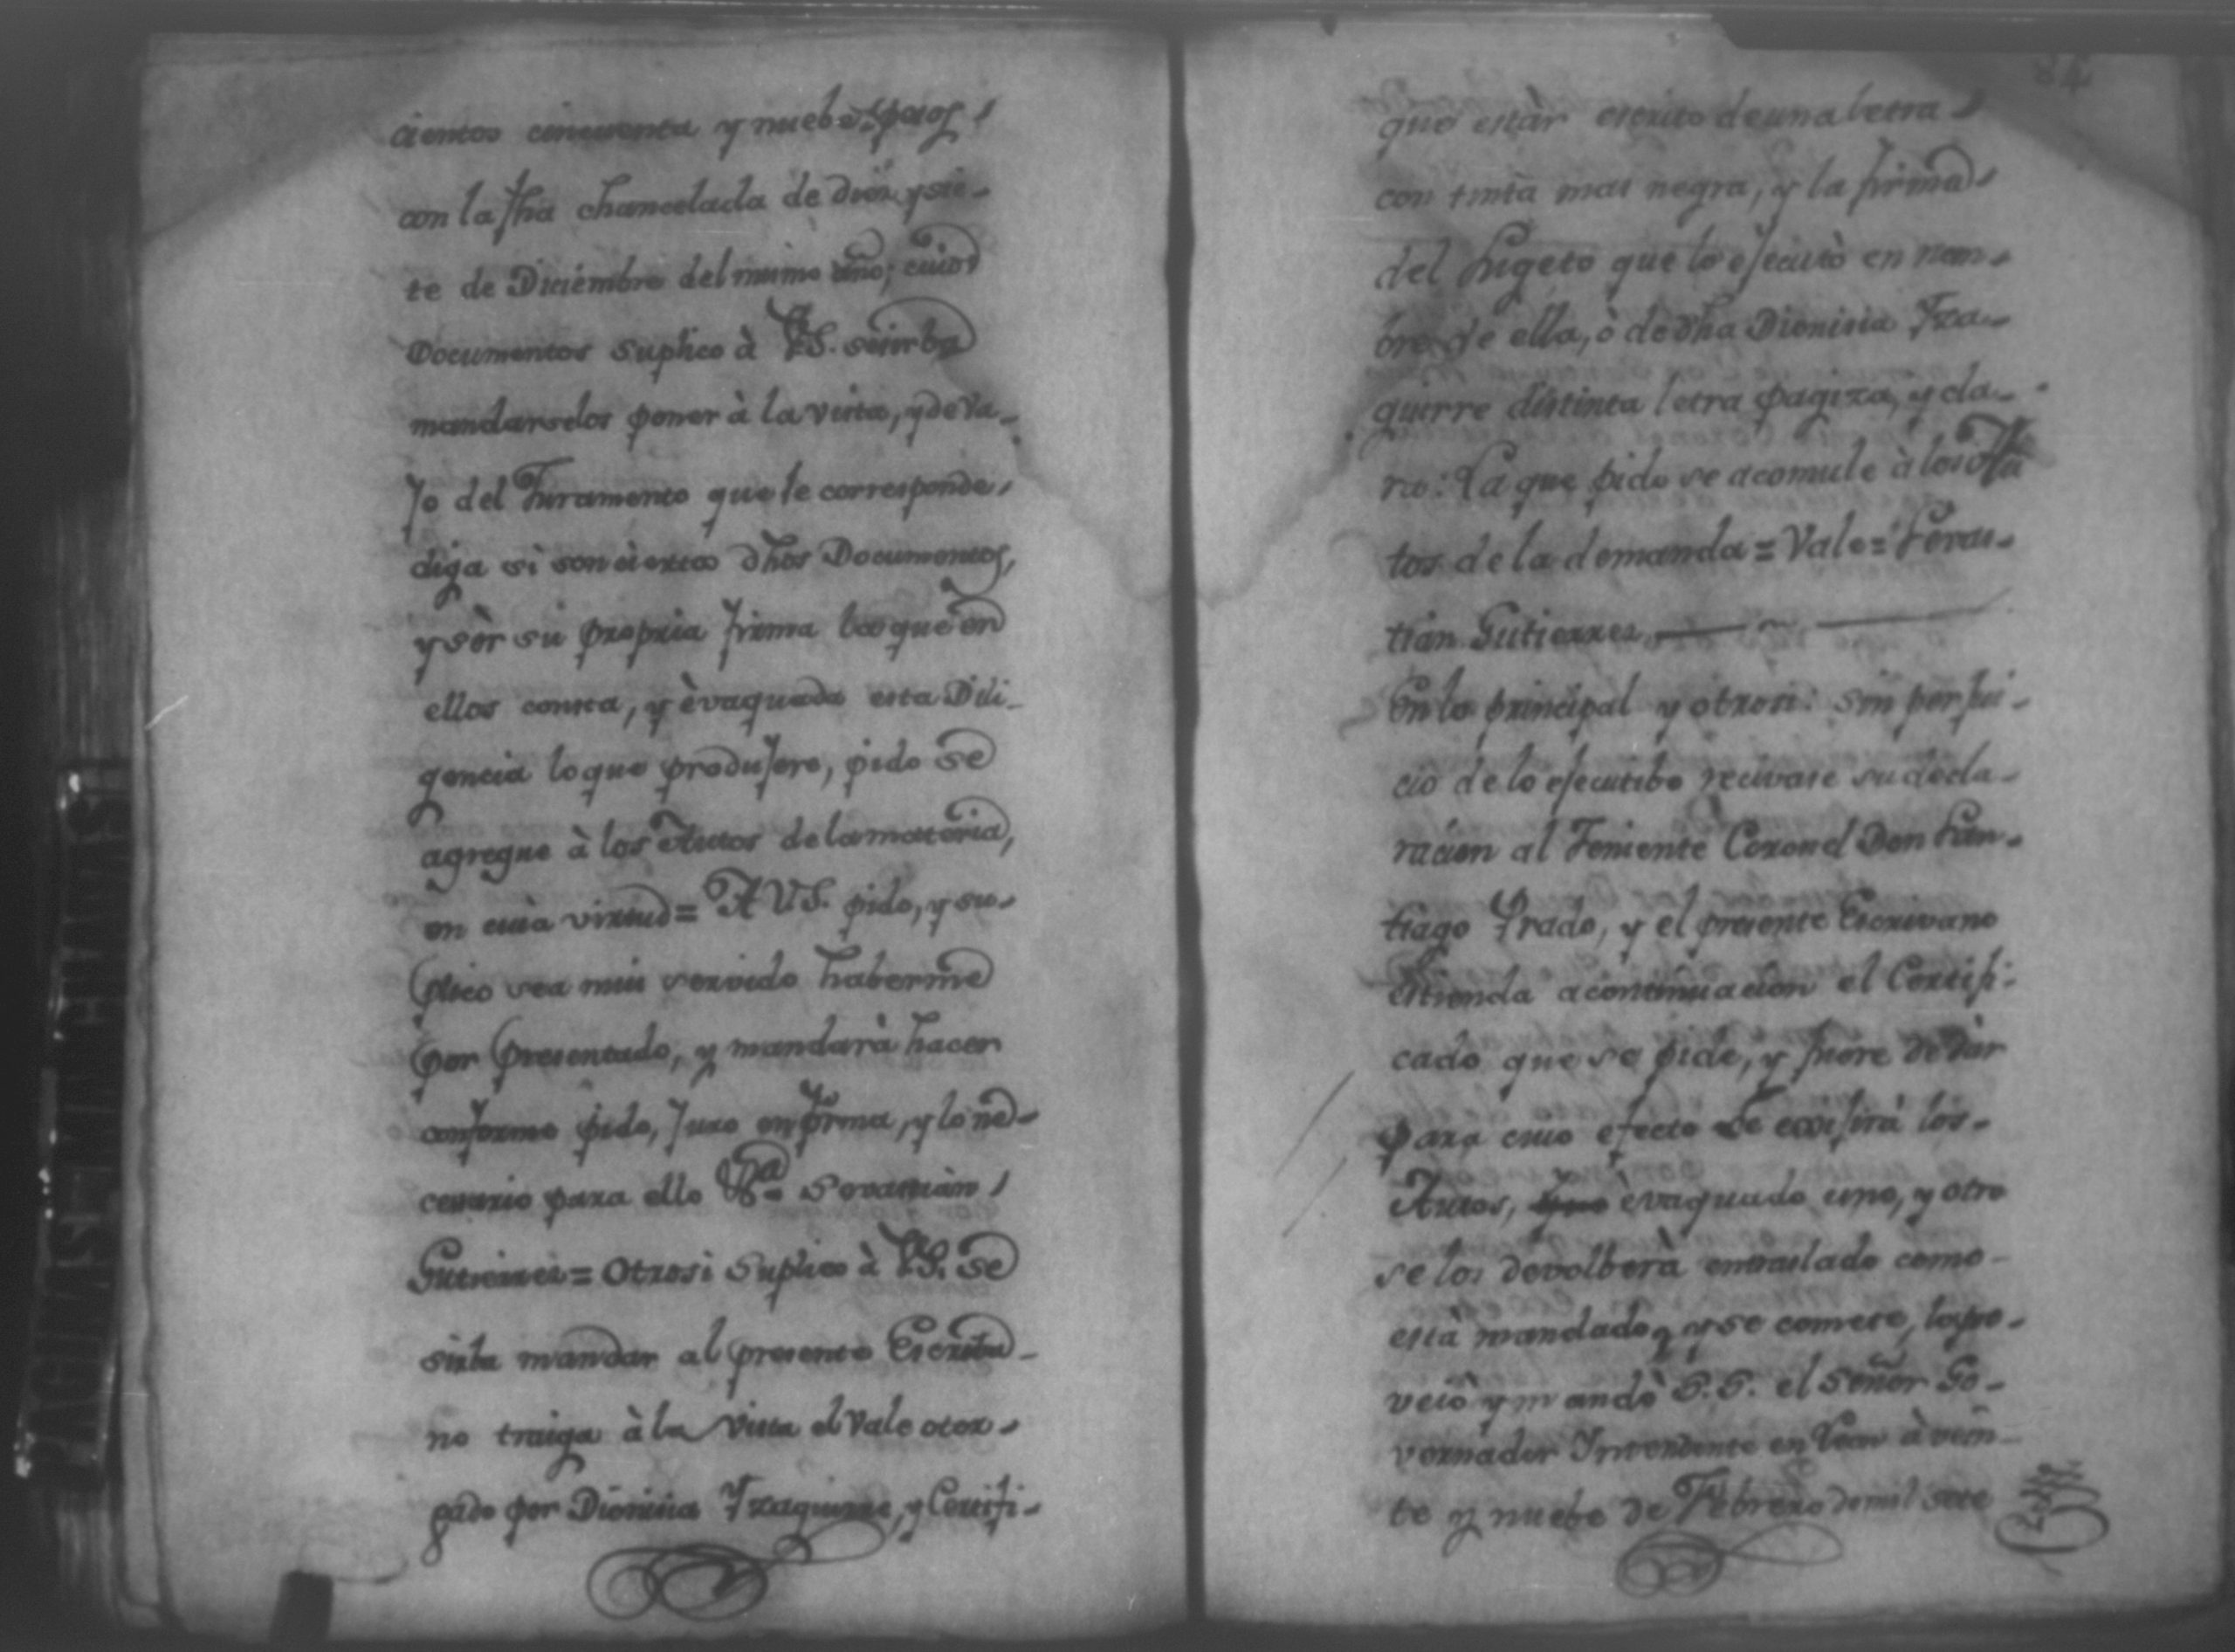 cientos cincuenta y nuebe pesos
con la fha chancelada de diez y sie-
te de Diciembre del mismo año; cuios
Documentos suplico à VS. se sirba
mandarselos poner à la vista, y de va-
Jo del Juramento que le corresponde
diga si son ciertos dhos Documentos,
y sèr su propria firma la que en
ellos consta, y èvaquada esta Dili-
gencia lo que produjere, pido se
agregue à los Autos de la materia,
en cuia virtud = A VS. pido, y su-
plico sea mui servido haberme
por presentado, y mandarà hacer
conforme pido, Juro en forma, y lo ne-
cesario para ello Vª Sevastian
Gutierrez = Otrosi Suplico à VS. se
sirba mandar al presente Escriba-
no traiga à la vista el Vale otor-
gado por Dionicia Yzaguirre, y Certifi-
84
que estàr escrito de una letra
con tinta mas negra, y la firma
del Sugeto que lo ejecutò en nom-
bre de ella, ò de dha Dionicia Yza-
guirre distinta letra pagiza, y cla-
ra: La que pido se acomule à los Au
tos de la demanda = Vale = Sevas-
tian Gutierrez
En lo principal y otrosi: sin perjui-
cio de lo ejecutibo recivase su decla-
racion al Teniente Coronel Don San-
tiago Prado, y el presente Escrivano
estienda acontinuacion el Certifi-
cado que se pide, y fuere de dar
para cuio efecto se exijirà los
Autos, èvaquado uno, y otro
se los devolberà entraslado como
està mandado, y se comete, lo pro-
veiò y mandò S.S. el Señor Go-
vernador Yntendente en à vein-
te y nuebe de Febrero de mil sete